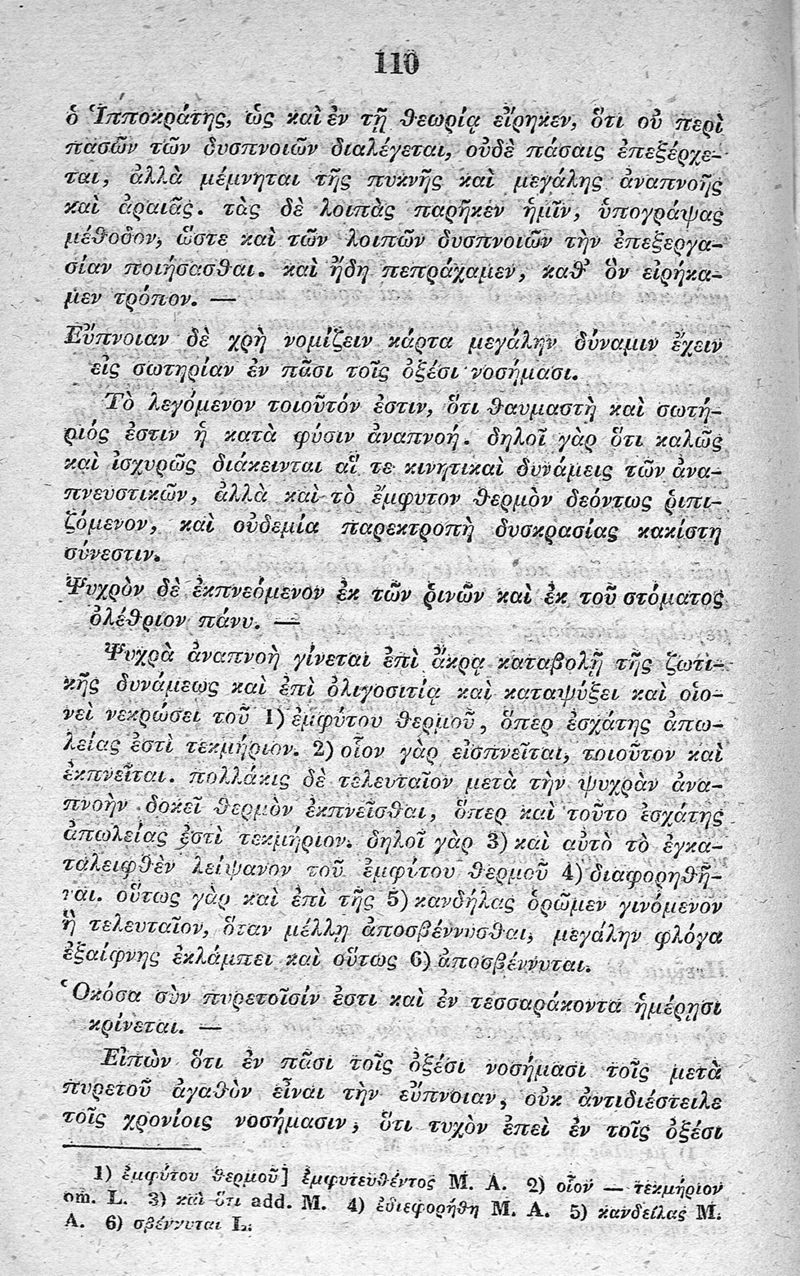 110
ὁ Ἱπποκράτης, ὡς καὶ ἐν τῇ θεωρίᾳ εἴρηκεν, ὅτι οὐ περὶ
πασῶν τῶν δυσπνοιῶν διαλέγεται, οὐδὲ πάσαις ἐπεξέρχε-
ται, ἀλλὰ μέμνηται τῆς πυκνῆς καὶ μεγάλης ἀναπνοῆς
καὶ ἀραιᾶς. τὰς δὲ λοιπὰς παρῆκεν ἡμῖν, ὑπογράψας
μέθοδον, ὥστε καὶ τῶν λοιπῶν δυσπνοιῶν τὴν ἐπεξεργα-
σίαν ποιήσασθαι. καὶ ἤδη πεπράχαμεν, καθ' ὃν εἰρήκα-
μεν τρόπον. —
Εὔπνοιαν δὲ χρὴ νομίζειν κάρτα μεγάλην δύναμιν ἔχειν
εἰς σωτηρίαν ἐν πᾶσι τοῖς ὀξέσι νοσήμασι.
Τὸ λεγόμενον τοιοῦτόν ἐστιν, ὅτι θαυμαστὴ καὶ σωτή-
ριός ἐστιν ἡ κατὰ φύσιν ἀναπνοή. δηλοῖ γὰρ ὅτι καλῶς
καὶ ἰσχυρῶς διάκεινται αἵ τε κινητικαὶ δυνάμεις τῶν ἀνα-
πνευστικῶν, ἀλλὰ καὶ τὸ ἔμφυτον θερμὸν δεόντως ῥιπι-
ζόμενον, καὶ οὐδεμία παρεκτροπὴ δυσκρασίας κακίστη
σύνεστιν.
Ψυχρὸν δὲ ἐκπνεόμενον ἐκ τῶν ῥινῶν καὶ ἐκ τοῦ στόματος
ὀλέθριον πάνυ. —
Ψυχρὰ ἀναπνοὴ γίνεται ἐπὶ ἄκρᾳ καταβολῇ τῆς ζωτι-
κῆς δυνάμεως καὶ ἐπὶ ὀλιγοσιτίᾳ καὶ καταψύξει καὶ οἱο-
νεὶ νεκρώσει τοῦ 1) ἐμφύτου θερμοῦ, ὅπερ ἐσχάτης ἀπω-
λείας ἐστὶ τεκμήριον. 2) οἷον γὰρ εἰσπνεῖται, τοιοῦτον καὶ
ἐκπνεῖται. πολλάκις δὲ τελευταῖον μετὰ τὴν ψυχρὰν ἀνα-
πνοὴν δοκεῖ θερμὸν ἐκπνεῖσθαι, ὅπερ καὶ τοῦτο ἐσχάτης
ἀπωλείας ἐστὶ τεκμήριον. δηλοῖ γὰρ 3) καὶ αὐτὸ τὸ ἐγκα-
ταλειφθὲν λείψανον τοῦ ἐμφύτου θερμοῦ 4) διαφορηθῆ-
ναι. οὕτως γὰρ καὶ ἐπὶ τῆς 5) κανδήλας ὁρῶμεν γινόμενον
ἢ τελευταῖον, ὅταν μέλλῃ ἀποσβέννυσθαι, μεγάλην φλόγα
ἐξαίφνης ἐκλάμπει καὶ οὕτως 6) ἀποσβέννυται.
Ὁκόσα σὺν πυρετοῖσίν ἐστι καὶ ἐν τεσσαράκοντα ἡμέρῃσι
κρίνεται. —
Εἰπὼν ὅτι ἐν πᾶσι τοῖς ὀξέσι νοσήμασι τοῖς μετὰ
πυρετοῦ ἀγαθὸν εἶναι τὴν εὔπνοιαν, οὐκ ἀντιδιέστειλε
τοῖς χρονίοις νοσήμασιν, ὅτι τυχὸν ἐπεὶ ἐν τοῖς ὀξέσι
1) ἐμφύτου θερμοῦ] ἐμφυτευθέντος M. A. 2) οἷον — τεκμήριον
om. L. 3) καὶ ὅτι add. M. 4) ἐδιεφορήθη M. A. 5) κανδείλας M.
A. 6) σβέννυται L.